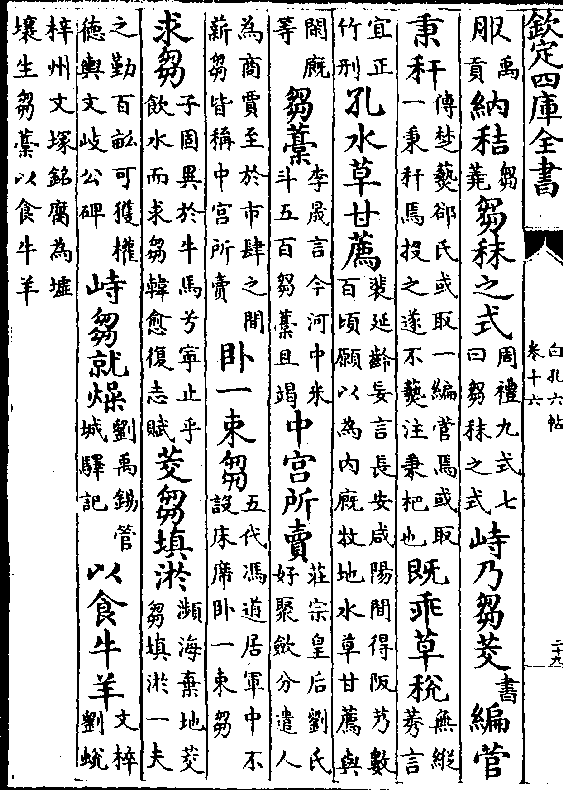 欽定四庫全書
白孔六帖
卷十六
二十九
服禹貢納秸芻藁芻秣之式周禮九式七曰芻秣之式峙乃芻茭書編菅
秉秆傳楚藝郤氏或取一編菅焉或取一秉秆焉投之遂不爇注秉杷也既乖草稅無縱蒭言
宜正竹刑孔水草甘薦裴延齡妄言長安咸陽間得陂艿數百頃願以為内廐牧地水草甘薦與
閑廐等芻藁李晟言今河中米斗五百芻藁且竭中宫所賣莊宗皇后劉氏好聚斂分遣人
為商賈至於市肆之間薪芻皆稱中宫所賣卧一束芻五代馮道居軍中不設床席卧一束芻
求芻子固異於牛馬兮寧止乎飲水而求芻韓愈復志賦茭芻填淤瀕海棄地茭芻填淤一夫
之勤百畝可獲權德輿文岐公碑峙芻就燥劉禹錫管城驛記以食牛羊文梓劉蛻
梓州文塚銘腐為墟壤生芻藁以食牛羊